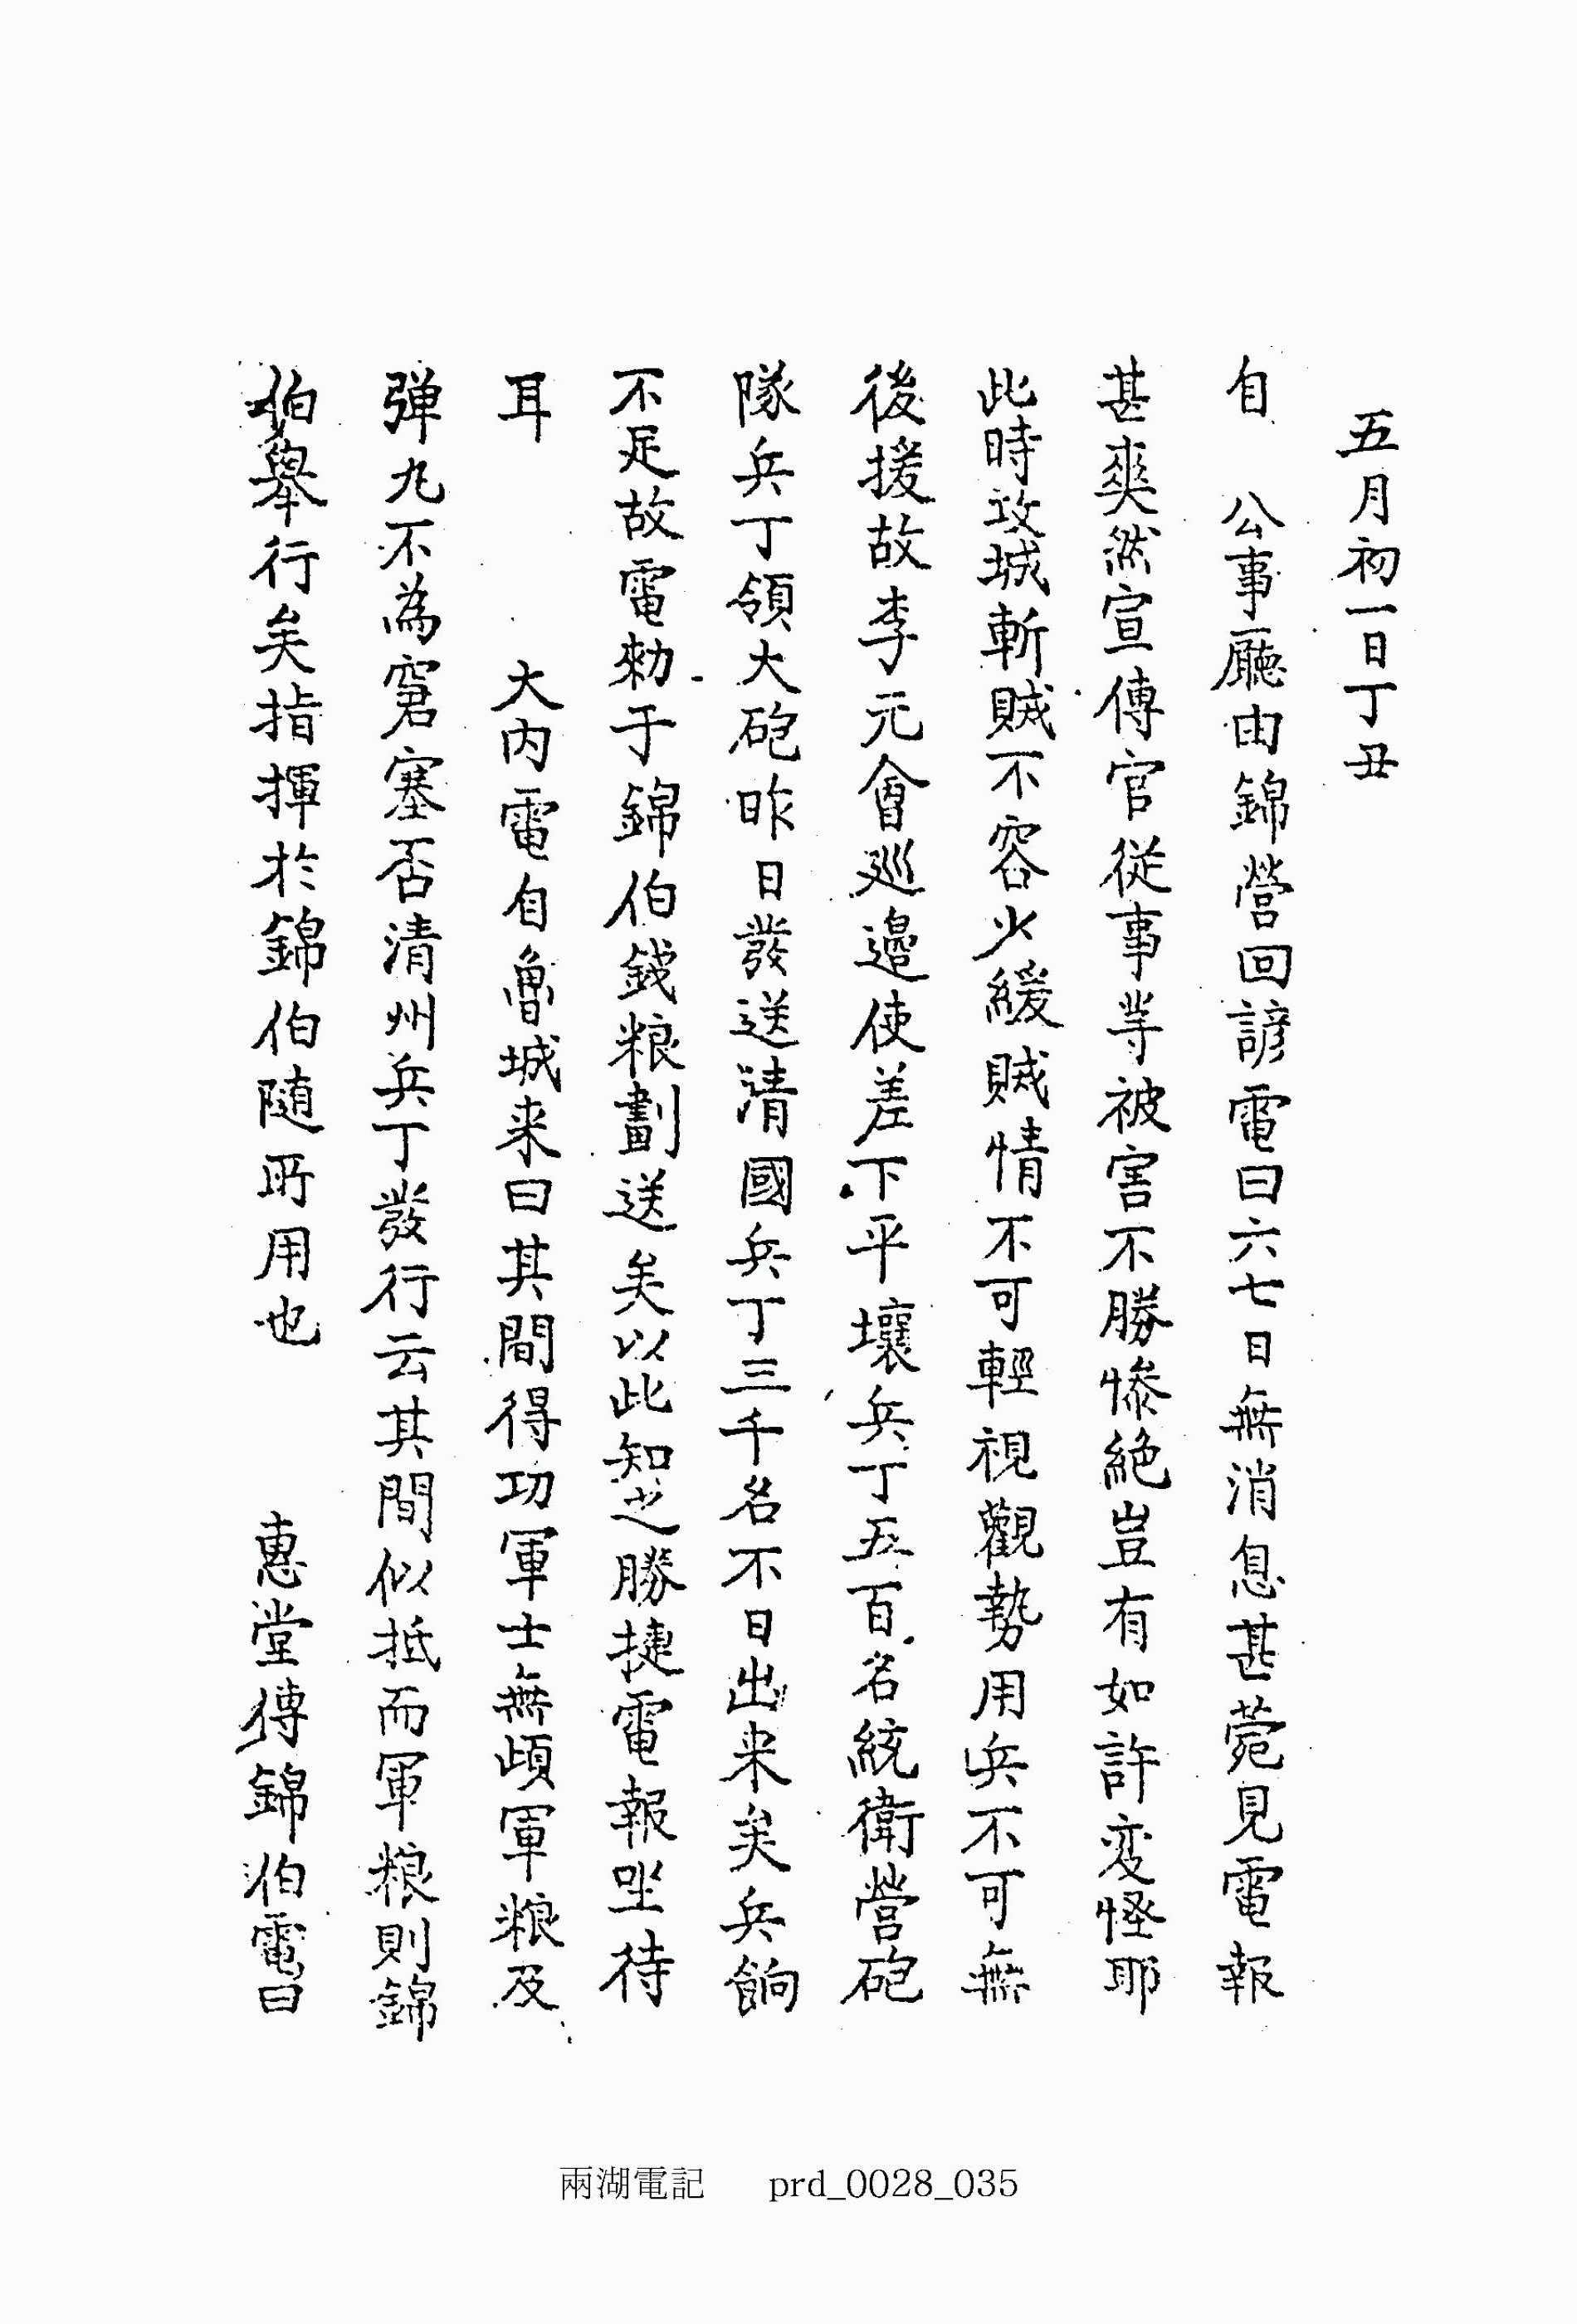 五月初一日丁丑
自 公事廳由錦營回諺電曰六七日無消息甚菀見電報
甚爽然宣傳官從事等被害不勝慘絶豈有如許変怪耶
此時攻城斬賊不容少緩賊情不可輕視觀勢用兵不可無
後援故李元會巡邉使差下平壤兵丁五百名統衛營砲
隊兵丁領大砲昨日發送清國兵丁三千名不日出来矣兵餉
不足故電勑于錦伯錢粮劃送矣以此知之勝捷電報坐待
耳 大内電自魯城来曰其間得功軍士無頉軍粮及
弹丸不為窘塞否清州兵丁發行云其間似抵而軍粮則錦
伯舉行矣指揮於錦伯随所用也 惠堂傳錦伯電曰
兩湖電記 prd_0028_035